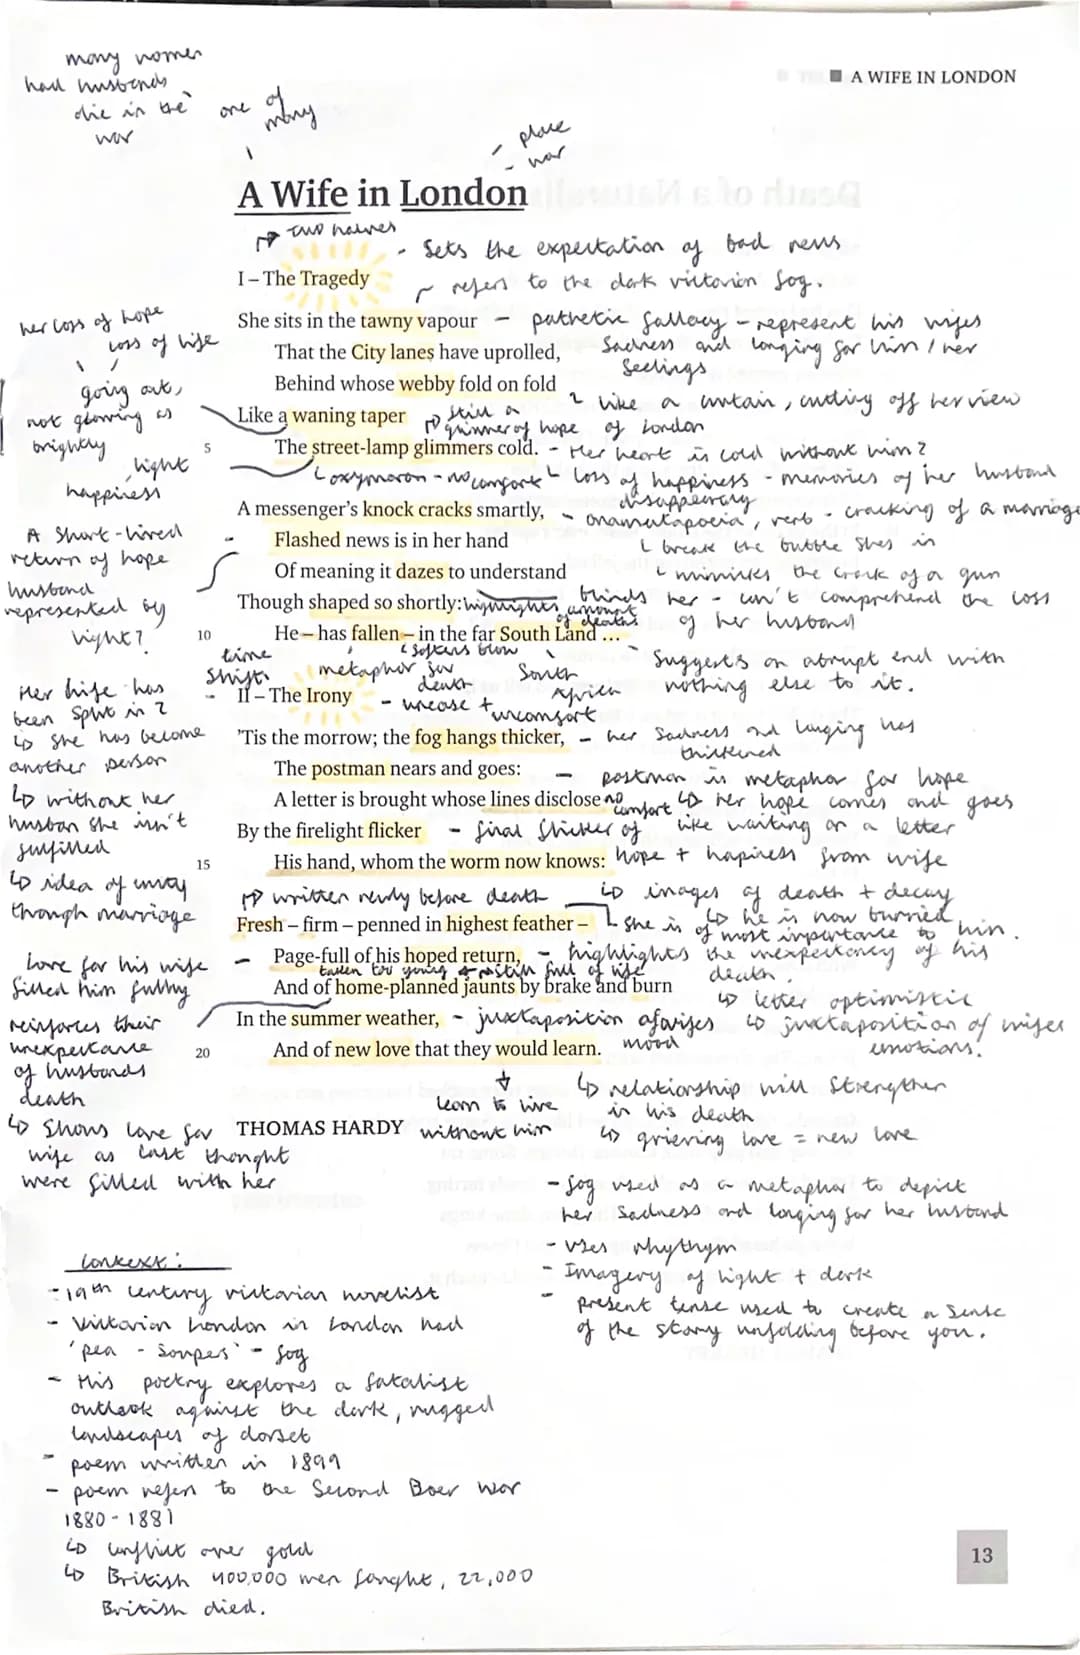 many women
had husbands
die in the
war
one of
many
- place
- war
■ A WIFE IN LONDON
A Wife in London
↳ two halves
- Sets the expectation of bad news
I – The Tragedy
refers to the dark victorian fog.
She sits in the tawny vapour - pathetic fallacy - represent his wifes
sadness and longing for him / her
feelings
That the City lanes have uprolled,
Behind whose webby fold on fold
like a curtain, cutting off her view
of London
Like a waning taper
↳ still a
glimmer of hope
5 The street-lamp glimmers cold. - Her heart is cold without him?
↳ oxymoron - no comfort
↳ loss of happiness - memories of her husband
disappearing
her loss of hope
loss of life
going out,
not glowing as
brightly
light
happiness
A messenger's knock cracks smartly, - onamatapoeia, verb - cracking of a marriage
Flashed news is in her hand
↳ break the bubble shes in
Of meaning it dazes to understand
↳ mimicks the crack of a gun
Though shaped so shortly:
highlights amount
of deaths
blinds her - can't comprehend the loss
of her husband
10 He – has fallen – in the far South Land ...
A short-lived
return of hope
husband
represented by
light?
time
shift
metaphor for
death
softens blow
South
Africa
- Suggests an abrupt end with
nothing else to it.
II – The Irony
- unease + uncomfort
'Tis the morrow; the fog hangs thicker, - her sadness and longing has
thickened
The postman nears and goes:
- postman is metaphor for hope
↳ her hope comes and goes
like waiting on a letter
A letter is brought whose lines disclose
no
comfort
By the firelight flicker - final flicker of
hope + hapiness from wife
15 His hand, whom the worm now knows:
↳ images of death + decay
↳ he is now burried
Her life has
been split in 2
↳ she has become
another person
↳ without her
husban she isn't
fulfilled
↳ idea of unity
through marriage
↳ written newly before death
Fresh – firm – penned in highest feather –
↳ she is of most importance to him.
Page-full of his hoped return, - highlights the unexpectancy of his
death
taken too young + still full of life
And of home-planned jaunts by brake and burn
↳ letter optimistic
In the summer weather, - juxtaposition of wifes
mood
↳ juxtaposition of wifes
emotions.
20 And of new love that they would learn.
love for his wife
filled him fully
reinforces their
unexpectance
of husbands
death
↳ shows love for
wife as last thought
were filled with her
learn to live
without him
↳ relationship will strengthen
in his death
↳ grieving love = new love
THOMAS HARDY
- fog used as a metaphor to depict
her sadness and longing for her husband
- uses rhythym
- Imagery of light + dark
- present tense used to create a sense
of the story unfolding before you.
Context:
- 19th century victorian novelist
- Victorian London in London had
'pea - soupers' - fog
- His poetry explores a fatalist
outlook against the dark, rugged
landscapes of dorset
- poem written in 1899
- poem refers to the Second Boer war
1880 - 1881
↳ conflict over gold
↳ British 400,000 men fought, 22,000
British died.
13